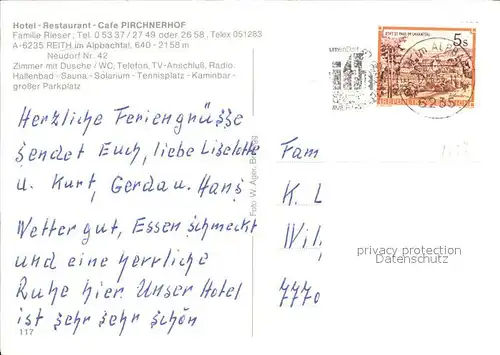 Hotel - Restaurant - Cafe PIRCHNERHOF
Familie Rieser, Tel. 0 53 37 / 27 49 oder 26 58, Telex 051283
A-6235 REITH im Alpbachtal, 640 - 2158 m
Neudorf Nr. 42
Zimmer mit Dusche / WC, Telefon, TV-Anschluß, Radio.
Hallenbad - Sauna - Solarium - Tennisplatz - Kaminbar -
großer Parkplatz
Herzliche Feriengrüsse
sendet Euch, liebe Liselotte
u. Kurt, Gerda u. Hans
Wetter gut, Essen schmeckt
und eine herrliche
Ruhe hier. Unser Hotel
ist sehr sehr schön
117
Foto W. Ager,
5 S
REPUBLIK
6235
Fam
K. L
Wil
7770
privacy protection
Datenschutz